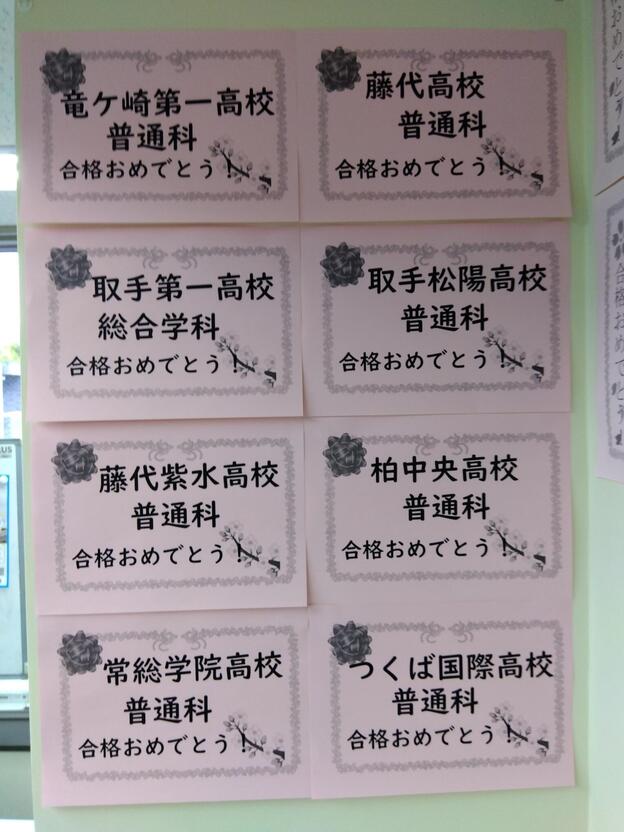 竜ケ崎第一高校
普通科
合格おめでとう!
藤代高校
普通科
合格おめでとう!
取手第一高校
総合学科
合格おめでとう!
取手松陽高校
普通科
合格おめでとう!
藤代紫水高校
普通科
合格おめでとう!
柏中央高校
普通科
合格おめでとう!
常総学院高校
普通科
合格おめでとう!
つくば国際高校
普通科
合格おめでとう!
合格おめでとう